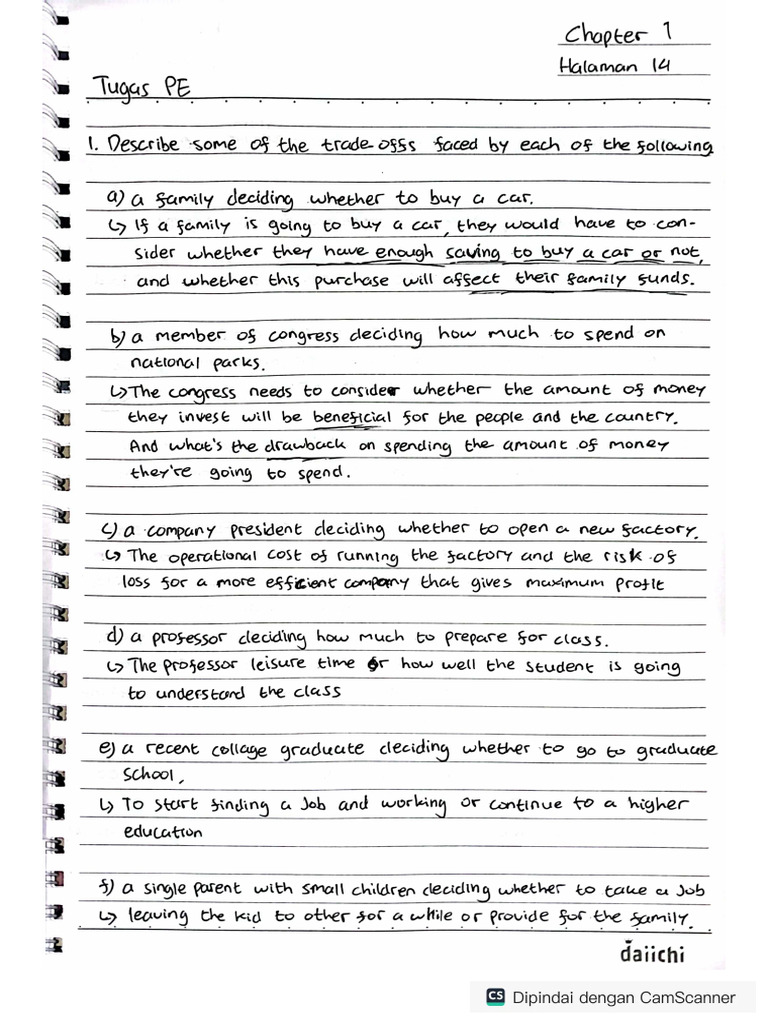 Chapter 1
Halaman 14
Tugas PE
1. Describe some of the trade-offs faced by each of the following
a) a family deciding whether to buy a car.
↳ If a family is going to buy a car, they would have to con-
sider whether they have enough saving to buy a car or not,
and whether this purchase will affect their family funds.
b) a member of congress deciding how much to spend on
national parks.
↳ The congress needs to consider whether the amount of money
they invest will be beneficial for the people and the country.
And what's the drawback on spending the amount of money
they're going to spend.
c) a company president deciding whether to open a new factory.
↳ The operational cost of running the factory and the risk of
loss for a more efficient company that gives maximum profit
d) a professor deciding how much to prepare for class.
↳ The professor leisure time or how well the student is going
to understand the class
e) a recent collage graduate deciding whether to go to graduate
school,
↳ To start finding a Job and working or continue to a higher
education
f) a single parent with small children deciding whether to take a Job
↳ leaving the kid to other for a while or provide for the family.
daiichi
CS Dipindai dengan CamScanner